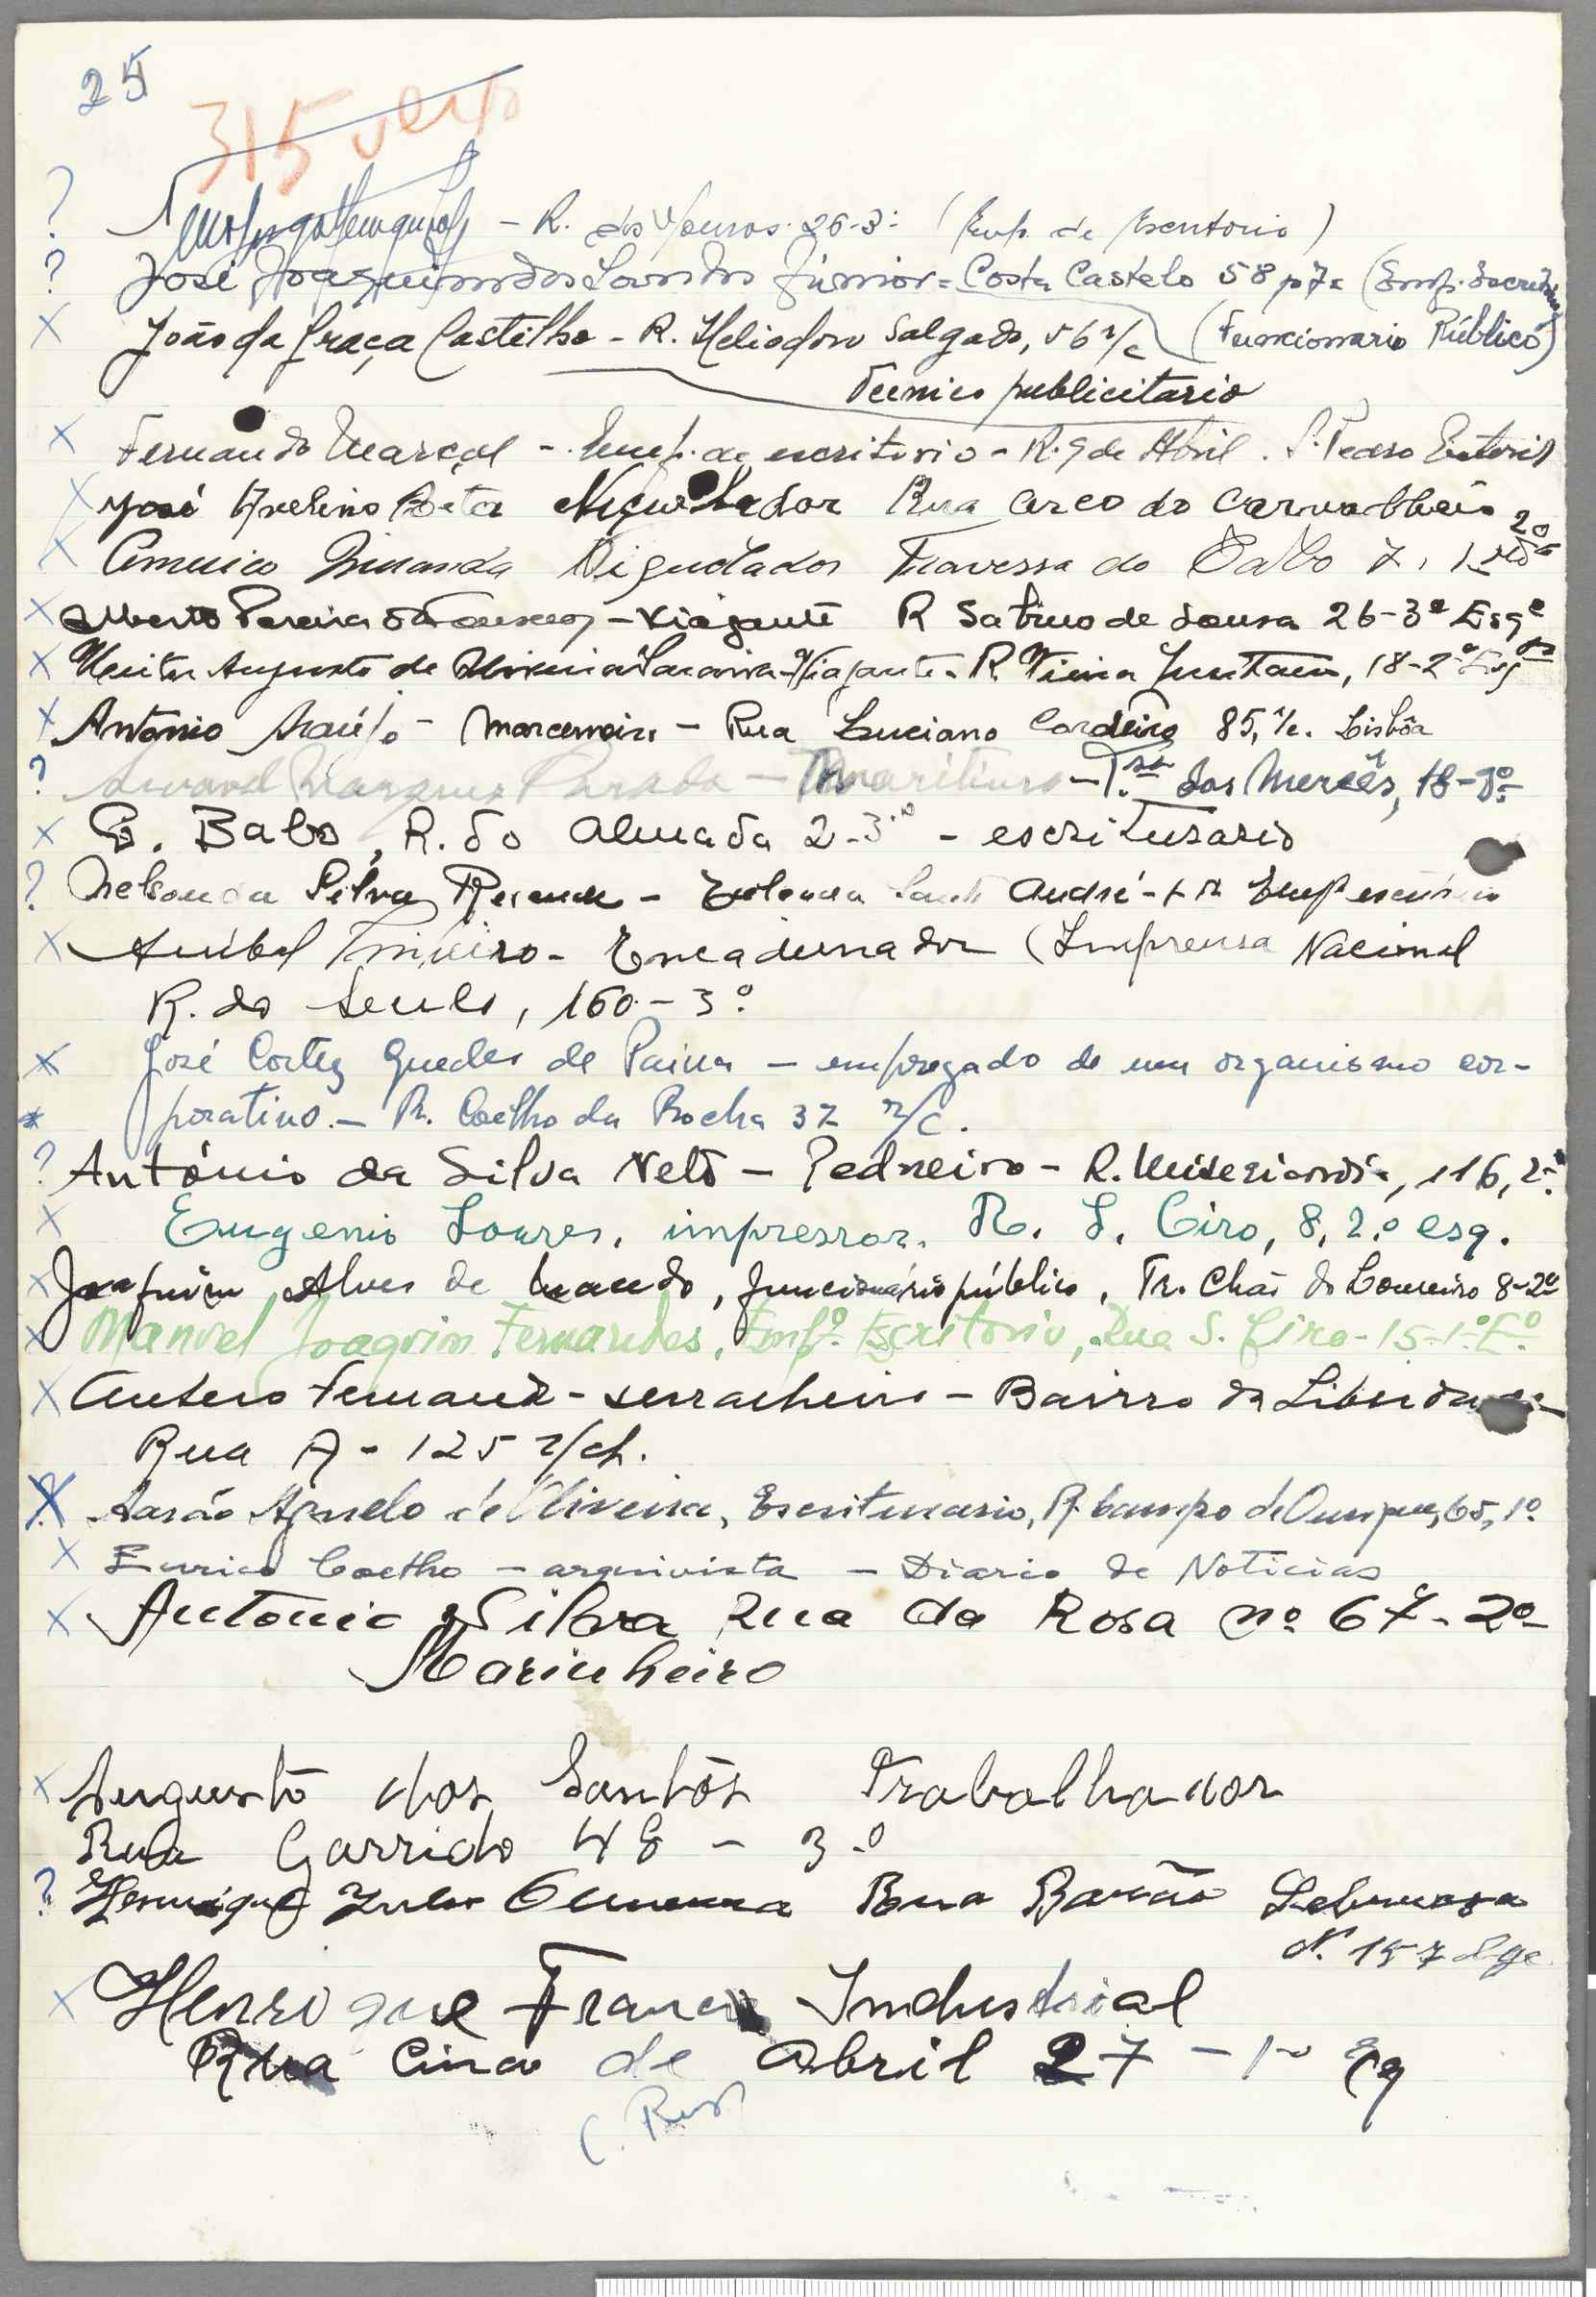 25
315 verso
? - R. dos Mouros. 26-3º (Emp. de Escritorio)
? José Joaquim dos Santos Júnior = Costa Castelo 58 p 7 = (Emp. Escritorio
X João da Graça Castilho - R. Heliodoro Salgado, 56 r/c (Funcionario Público)
Técnico publicitario
X Fernando Marçal - Emp. de escritorio - R. 9 de Abril. S. Pedro Estoril
X José Avelino Niquelador Rua Arco do Carvalhão 20
X Americo Miranda Niquelador Travessa do Cabo 7, 1º
X Alberto Pereira da Fonseca - Viajante R Sabino de Sousa 26-3º Esqº
X Heitor Augusto de Oliveira Saraiva - Viajante - R. 18-2º Esq
X António Araújo - Marceneiro - Rua Luciano Cordeiro 85, r/c. Lisbôa
? Manuel Marques Parada - Maritimo - T.sa das Mercês, 18-3º
X . Babo, R. do Almada 2-3.º - escriturario
? Nelson da Silva - Santo André - Emp escritorio
X Anibal Pinheiro - Encadernador (Imprensa Nacional
R. do Seculo, 160 - 3º
X José Cortez Guedes de Paiva - empregado de um organismo cor-
* porativo. - R. Coelho da Rocha 37 r/c.
? António da Silva Neto - Pedreiro - R. Misericordia, 116, 2º
X Eugenio Loures, impressor, R. S. Ciro, 8, 2.º esq.
X Joaquim Alves de Macedo, funcionário público, Tr. Chão do Loureiro 8-2º
X Manuel Joaquim Fernandes, Empº Escritorio, Rua S. Ciro - 15-1º Eº
X Antero Fernandes - serralheiro - Bairro da Liberdade
Rua A - 125 r/ch.
X Aarão Agnelo de Oliveira, Escriturario, R. Campo de Ourique, 65, 1º
X Eurico Coelho - arquivista - Diario de Noticias
X António Silva Rua da Rosa nº 67-2º
Marinheiro
X Augusto dos Santos Trabalhador
Rua Garrido 48 - 3º
? Henrique Rua Barão Sabrosa
N. 157
X Henrique Franco Industrial
Rua Cinco de Abril 27 - 1º Eq